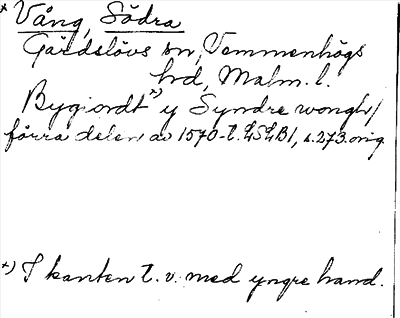 * Vång, Södra
Gärdslövs sn, Vemmenhögs
hd, Malm. l.
Bygiordt *) y Syndre wongh/
förra delen av 1570-t. LSLB1, s. 273. orig.
*) I kanten t. v. med yngre hand.